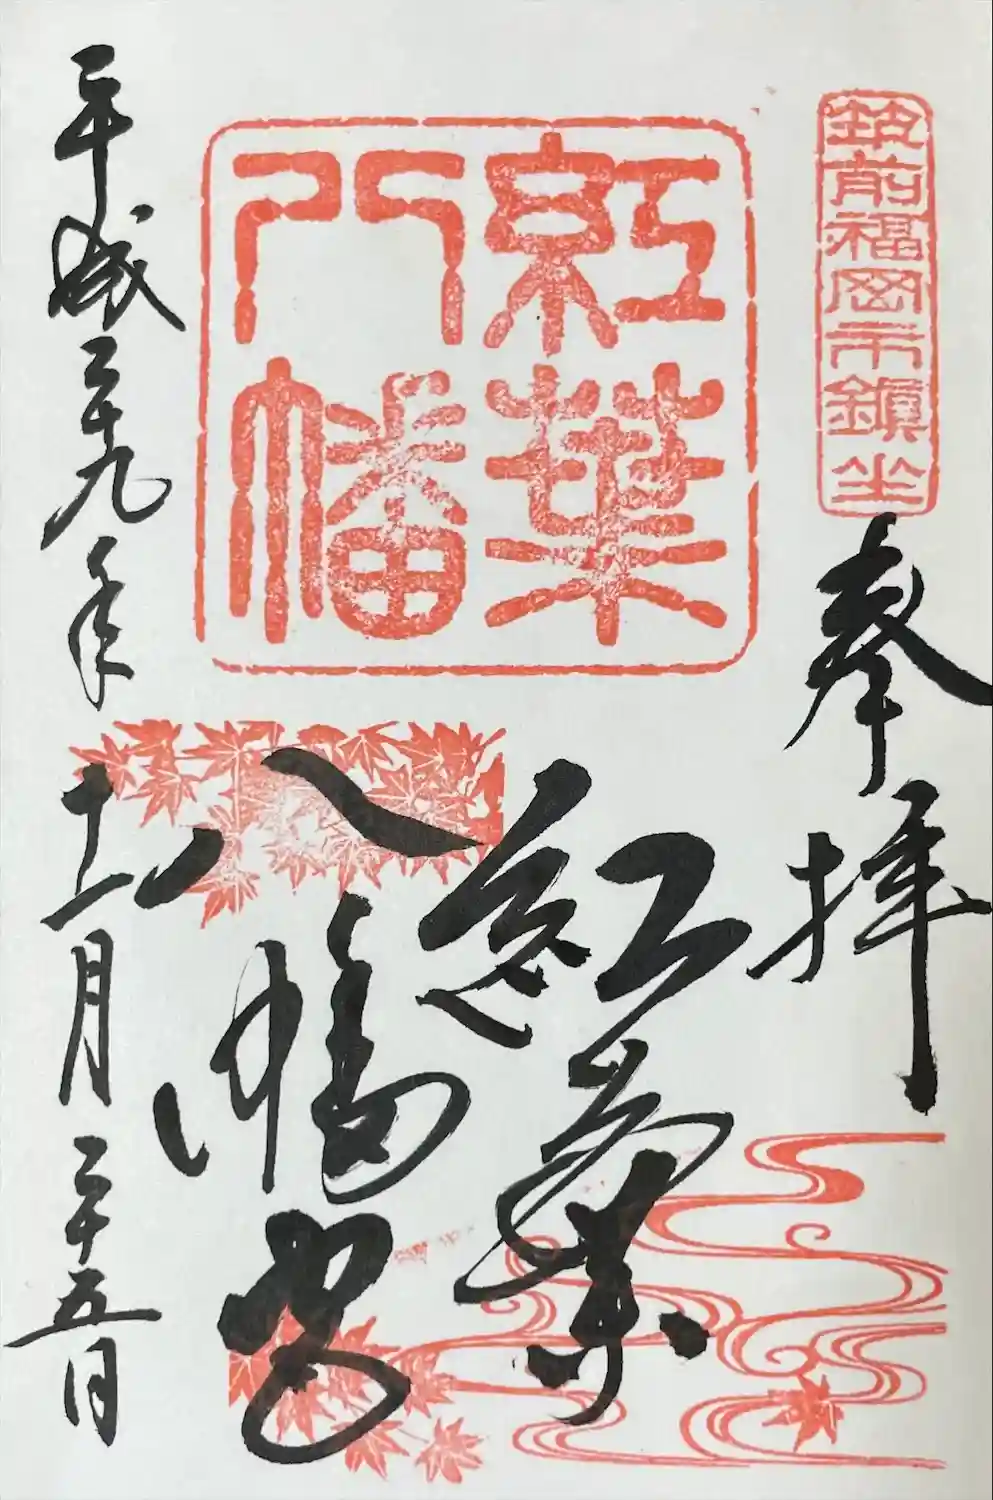 筑前福岡市鎮坐
奉拝
紅葉
八幡
紅葉
八幡宮
平成二十九年
十一月二十五日